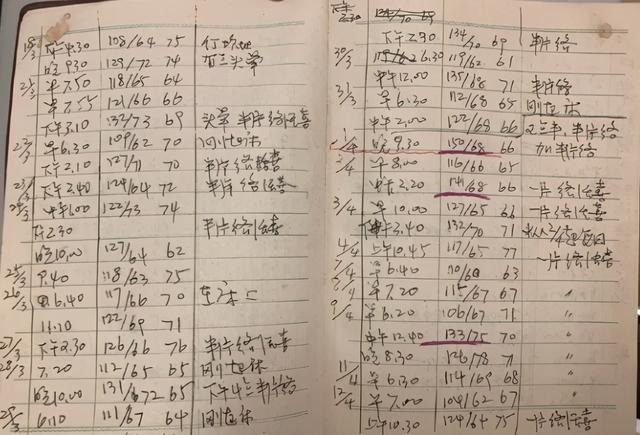 19/3 下午4.30 108/64 75
晚9.30 129/72 74 有三头晕
21/3 早7.50 118/65 64
早7.55 121/66 66
下午3.10 132/73 69 头晕 半片络活喜
23/3 早6.30 109/62 70 刚起床
下午2.10 127/71 70 半片络活喜
23/3 下午2.40 124/64 72 半片络活喜
24/3 中午1.00 122/63 74
下午2.30 半片络活喜
晚10.00 127/64 62
25/3 9.40 118/63 75
26/3 6.40 117/66 70
11.10 122/69 71
27/3 下午2.30 126/66 76 半片络活喜
28/3 7.20 112/65 65 刚起床
晚10.00 131/72 65 下午 半片络
29/3 6.10 111/67 64 刚起床
下午2.30 134/70 69 半片络
30/3 6.30 119/62 61
中午12.00 135/68 71 半片络
31/3 早6.30 112/68 65 刚起床
中午2.00 122/68 66 半片络
1/4 晚9.30 150/68 66 加半片络
2/4 早8.00 116/66 65
中午2.20 141/68 66 一片络活喜
3/4 早10.00 127/65 66 一片络活喜
3.40 132/70 71
4/4 上午10.45 117/65 77 一片络活喜
早6.40 110/60 63
早7.20 115/67 67 〃
9/4 早6.20 106/67 71 〃
中午12.40 133/75 70 〃
晚8.30 126/78 71 〃
11/4 早6.30 114/69 68 〃
12/4 早7.00 104/62 67 〃
上午10.30 124/64 75 一片络活喜